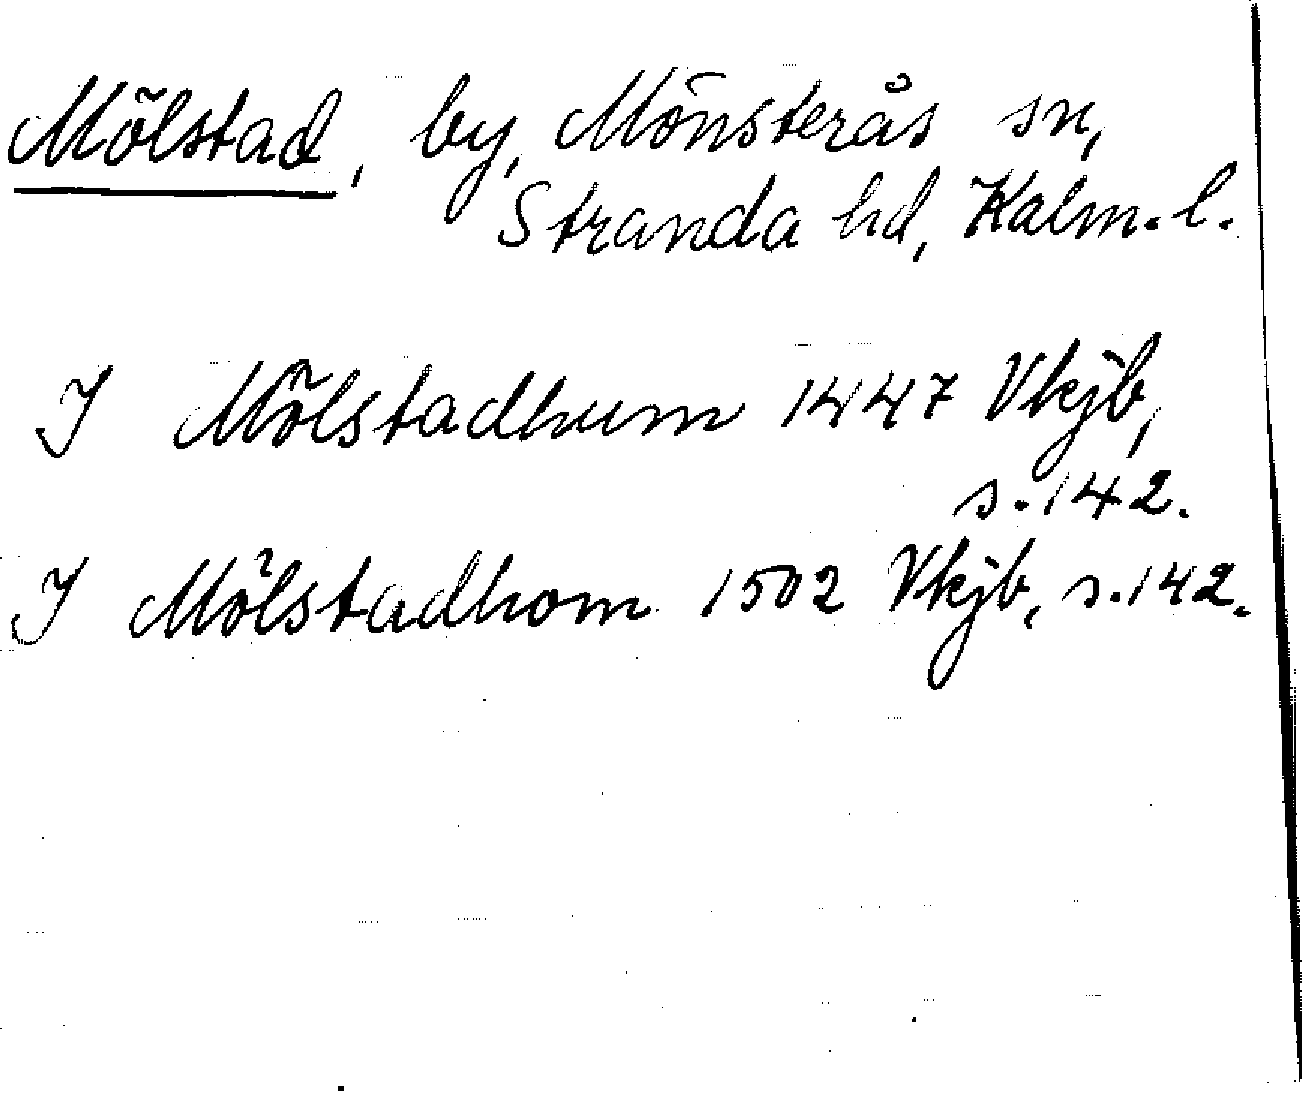 Mölstad, by, Mönsterås sn,
Stranda hd, Kalm. l.
I Mölstadhum 1447 Vkjb,
s. 142.
I Mölstadhom 1502 Vkjb, s. 142.